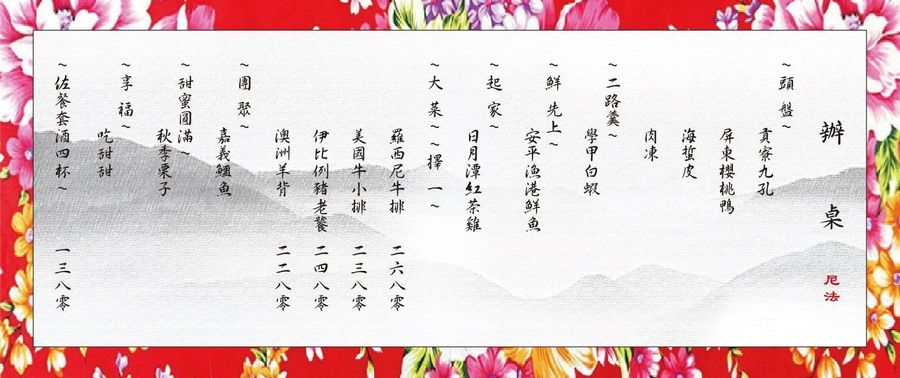 辦桌
尼法
~頭盤~
貢寮九孔
屏東櫻桃鴨
海蜇皮
肉凍
~二路羹~
學甲白蝦
~鮮先上~
安平漁港鮮魚
~起家~
日月潭紅茶雞
~大菜~~擇一~
羅西尼牛排 二六八零
美國牛小排 二三八零
伊比利豬老饕 二四八零
澳洲羊背 二二八零
~團聚~
嘉義鱷魚
~甜蜜圓滿~
秋季栗子
~享福~
吃甜甜
~佐餐套酒四杯~ 一三八零